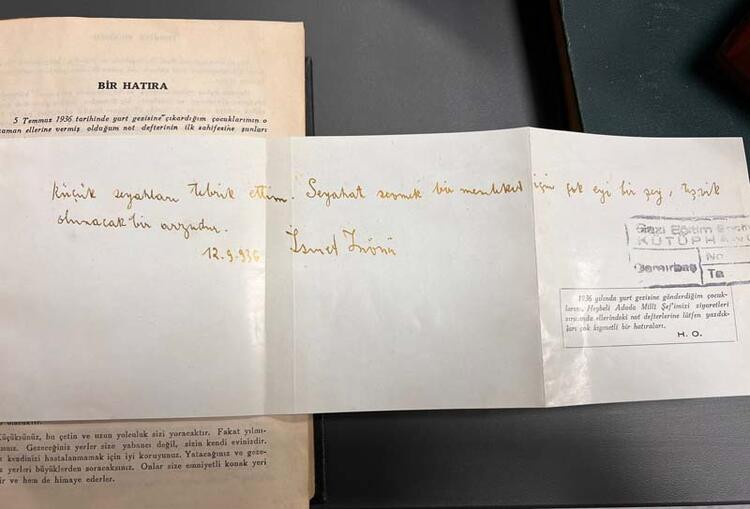 BİR HATIRA
5 Temmuz 1936 tarihinde yurt gezisine çıkardığım çocuklarımın o
zaman ellerine vermiş olduğum not defterinin ilk sahifesine şunları
Küçük seyahları tebrik ettim. Seyahat sevmek bir memleket için çok eyi bir şey, teşvik
olunacak bir arzudur.
12.9.936 İsmet İnönü
Gazi Eğitim
KÜTÜPHAN
Demirbaş No
Ta
1936 yılında yurt gezisine gönderdiğim çocuk-
ların, Heybeli Adada Millî Şef'imizi ziyaretleri
sırasında ellerindeki not defterlerine lütfen yazdık-
ları çok kıymetli bir hatıraları.
H. O.
Küçüksünüz, bu çetin ve uzun yolculuk sizi yoracaktır. Fakat yılmı-
Gezeceğiniz yerler size yabancı değil, sizin kendi evinizdir.
kendinizi hastalanmamak için iyi koruyunuz. Yatacağınız ve geze-
yerleri büyüklerden soracaksınız. Onlar size emniyetli konak yeri
ir ve hem de himaye ederler.